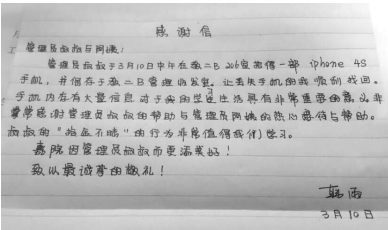 感谢信
管理员叔叔与阿姨:
管理员叔叔于3月10日中午在教二B 206室拾得一部 iphone 4S
手机,并保存于教二B管理收发室,让丢失手机的我顺利找回。
手机内存有大量信息对于我的学习生活具有非常重要的意义,非
常感谢管理员叔叔的帮助与管理员阿姨的热心接待与帮助。
叔叔的“拾金不昧”的行为非常值得我们学习。
嘉院因管理员叔叔而更添美好!
致以最诚挚的敬礼!
韩雨
3月10日